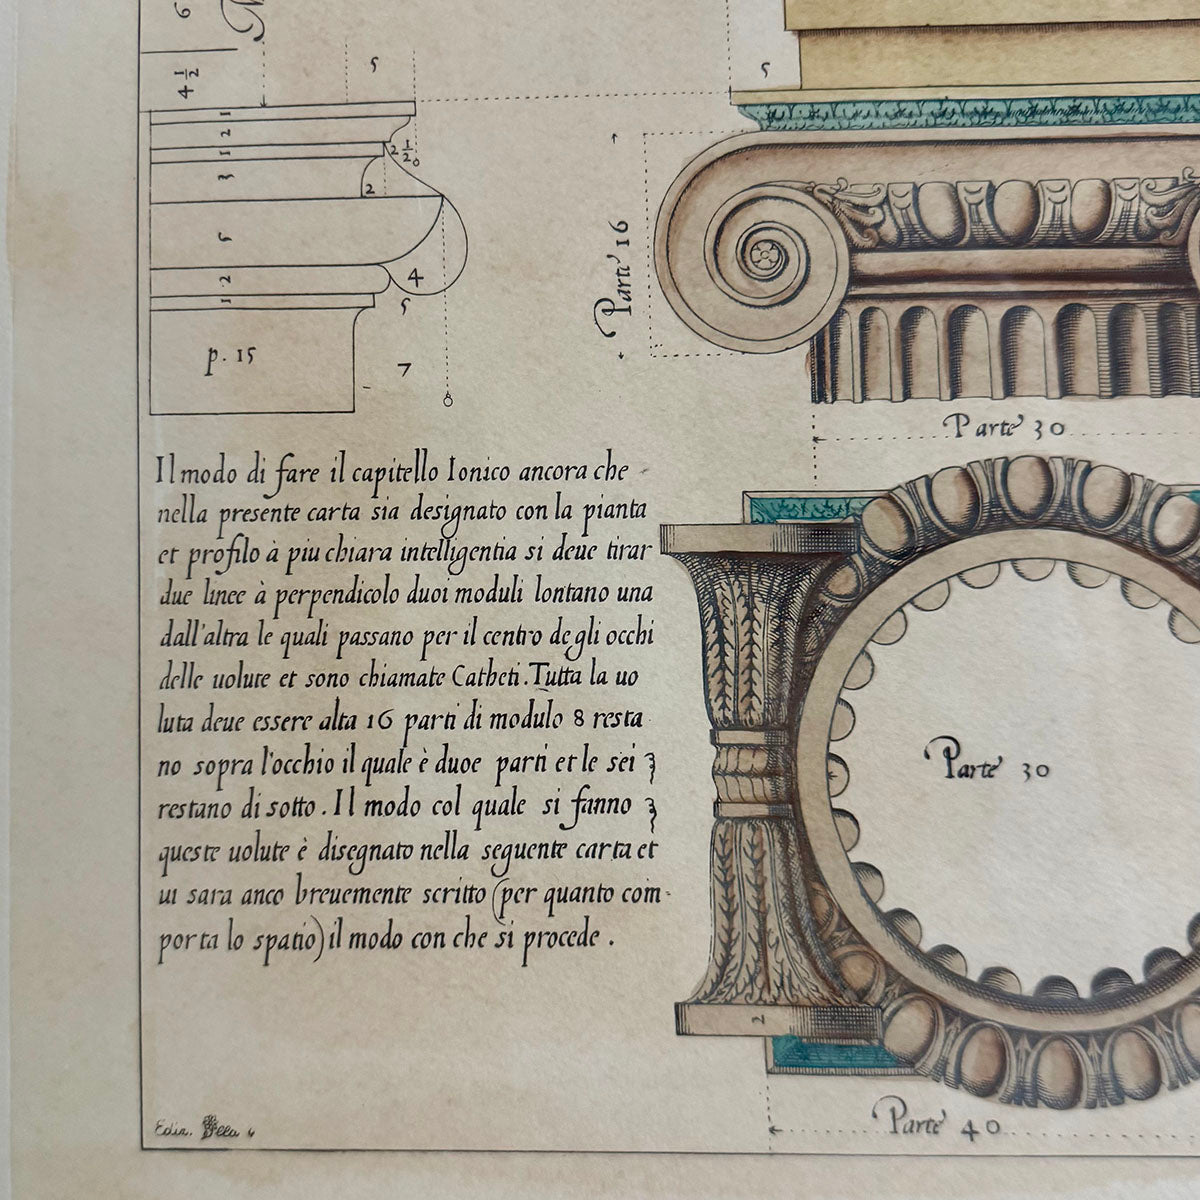 6
4 1/2
5
1
2
1
3
2 1/2
2
5
2
1
4
5
p. 15
7
5
Parte 16
Parte 30
Il modo di fare il capitello Ionico ancora che
nella presente carta sia designato con la pianta
et profilo à piu chiara intelligentia si deue tirar
due linee à perpendicolo duoi moduli lontano una
dall'altra le quali passano per il centro degli occhi
delle uolute et sono chiamate Catheti. Tutta la uo
luta deue essere alta 16 parti di modulo 8 resta
no sopra l'occhio il quale è duoe parti et le sei
restano di sotto. Il modo col quale si fanno
queste uolute è disegnato nella seguente carta et
ui sara anco breuemente scritto (per quanto com-
porta lo spatio) il modo con che si procede.
Parte 30
2
Parte 40